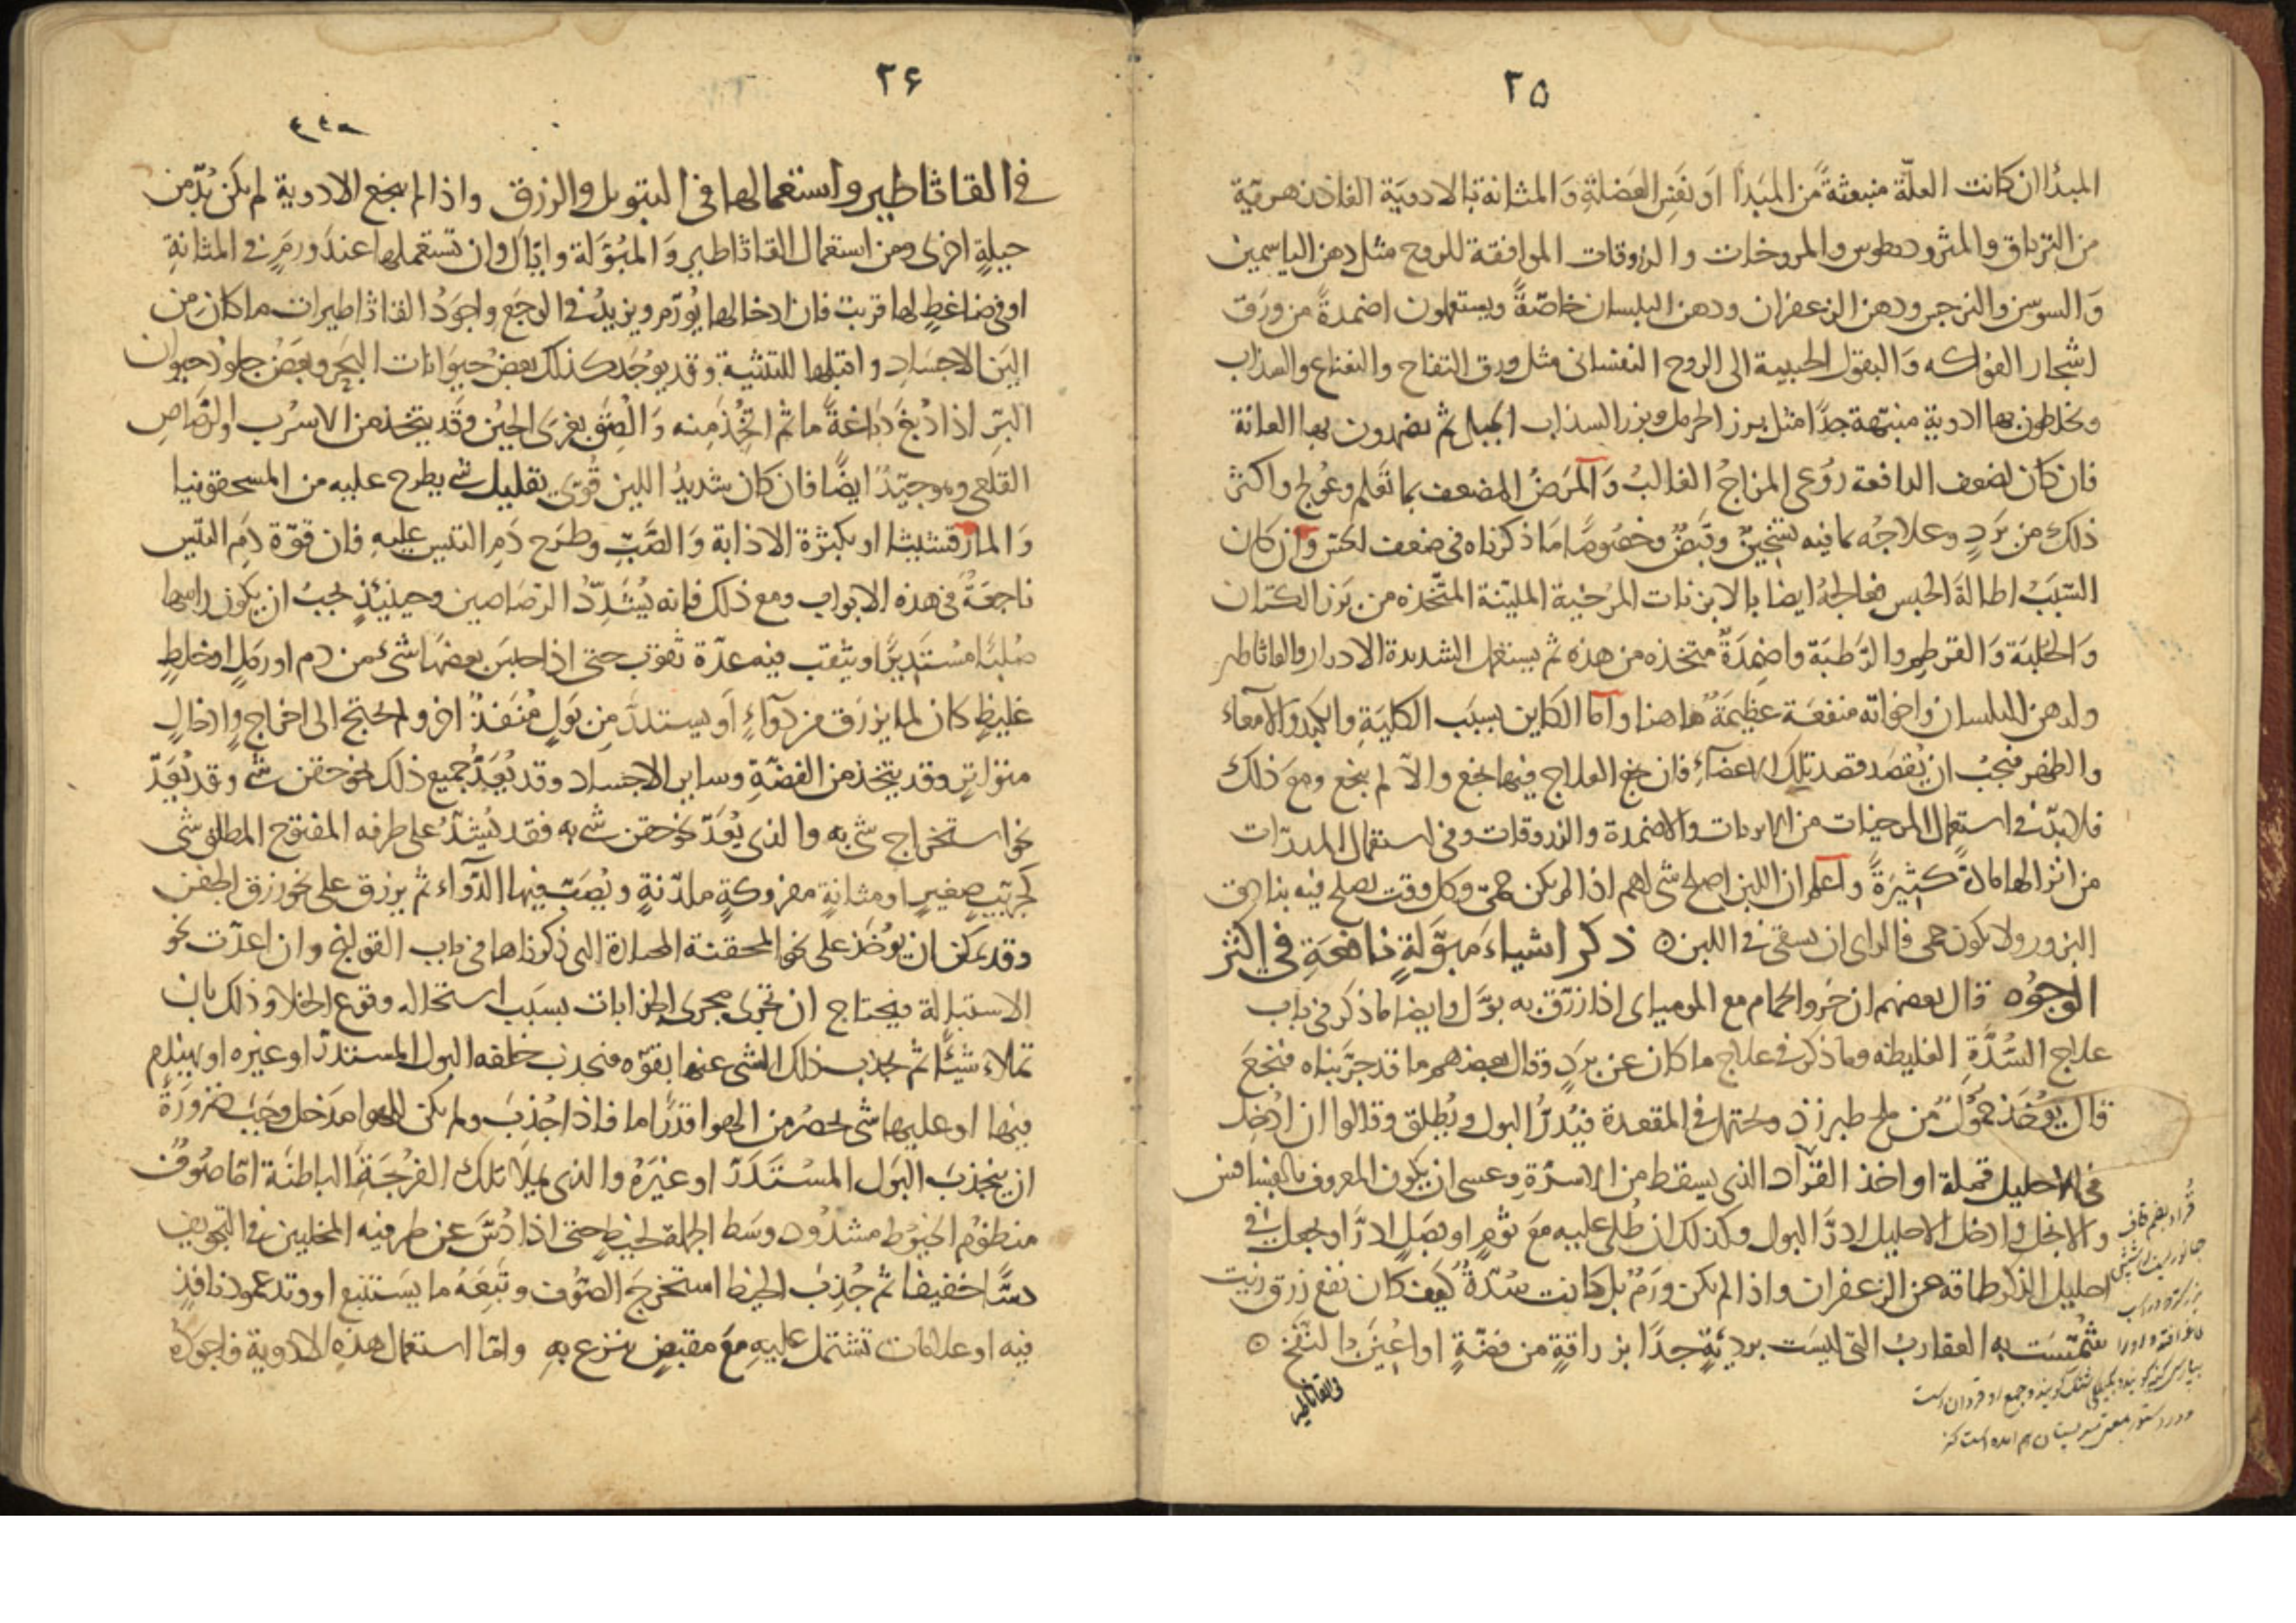 ٢٥
المبدأ ان كانت العلّة منبعثةً من المبَدأ او نفَسِ العَضلةِ وَالمثانة بالادويَة الفاذزهريّة
من الترياق والمثروديطوس والمروخات والزروقات الموافقة للروح مثل دهن الياسمين
وَالسوسن والنرجس ودهن الزعفران ودهن البلسان خاصّةً ويستعملون اضمدةً من ورَق
اشجار الفواكه وَالبقول الحبيبة الى الروح النفسانى مثل ورق التفاح والنعناع والسذاب
ويخلطون بها ادوية منبّهة جدًا مثل بزر الحرمل وبزر السذاب الجبلى ثم يضمدون بها العانة
فان كان لضعف الدافعة رُوعى المزاجُ الغالبُ وَالمَرَضُ المضعف بما تعلم وعُولج واكثر
ذلك من بَردٍ وعلاجُه بما فيه تسخينٌ وقَبضٌ وخصُوصًا مَا ذكرناه فى ضعف الحس وان كان
السّبَبُ اطالةَ الحبس فعالجهُ ايضا بالابزنات المُرخية المليّنة المتّخذه من بَزر الكتان
وَالحلبَة وَالقرطم والرَطبَة واضمِدَةٌ متخذه من هذه ثم يستعمل الشديدة الادرار والقاثاطير
ولدهن البلسان واخواته منفعَة عَظيمَةٌ هاهنا وَاما الكاين بسبَب الكليَةِ والكبَد والامعاء
والظهر فيجبُ ان يُقصَد قصد تلك الاعضآءِ فان نجع العلاج فيها نجع والّا لم ينجع ومعَ ذلك
فلابدّ فى استعمال المرخيات من الابزنات والاضمدة والزروقات وفى استعمال المدرّات
من اثر الها مادةً كثيرَةً واعلم ان اللبن اصلح شى لهم اذا لم يكن حمّى وكل وقت يصلح فيه بنادق
البزور ولا يكون حمى فالراى ان يسقى فى اللبن ٥ ذكر اشياءَ مَبوّلةٍ نافعَةٍ فى اكثر
الوجُوه قال بعضهم ان خرو الحمام مع المومياى اذا زرّق به بوّل وايضا ما ذكر فى باب
علاج السُّدَّةِ الغليظه وما ذكر فى علاج ما كان عن بردٍ وقال بعضهم ما قد جرّبناه فنجعَ
قال يُوخَذ حمُولٌ من ملح طبرزذ ويحتمل فى المقعدة فيُدرُّ البول ويُطلق وقالوا ان اُدخل
فى الاحليل قملة او اخذ القراد الذى يسقط من الاسرّةِ وعسى ان يكون المعروف بالفسافس
والانجل وادخل الاحليل ادرَّ البول وكذلك ان طُلى عليه مَعَ ثومٍ او بصَلٍ ادرَّ او جعل فى
احليل الذكر طاقة من الزعفران واذا لم يكن ورَمٌ بل كانت سُدّةٌ كَيفَ كان نفع زرق زيت
شُمّسَت به العقارب التى ليسَت برديَّةٍ جدًا بزراقةٍ من فضّةٍ او اُعينَ بالنفخ ٥
فى القاثاطير
قُراد بضم قاف
٢٦
فى القاثاطير واستعمالها فى التبويل والزرق واذا لم ينجع الادوية لم يكن بُدّ من
حيلةٍ اخرى ومن استعمال القاثاطير وَالمُبوّلة وايّاك وان تستعملها عند وَرمٍ فى المثانةِ
او فى ضاغطٍ لها قريب فان ادخالها يُورّم ويزيدُ فى الوجَع واجوَدُ القاثاطيرات ما كان من
اليَن الاجسَادِ واقبلها للتثنية وقد يوجَد كذلك بعض حيوَانات البحَر وبعَض جلود حيوان
البَرّ اذا دُبغَ دَباغةً ما ثم اتُّخذ مِنه وَاُلصِقَ بغرَى الجبُن وَقد يتخذ من الاسرُب والرّصاص
القلعى وهو جيّدٌ ايضًا فان كان شديدُ اللين قُوّىَ بقليل شى يطرح عليه من المسحقونيا
وَالمارقشيثا او بكثرة الاذابة وَالصَّبّ وطرَح دَمِ التيس عليهِ فان قوّة دَمِ التيس
ناجعَةٌ فى هذه الابواب ومع ذلك فانه يُشَدِّدُ الرّصَاصين وحينَئذٍ يجبُ ان يكون راسها
صُلبًا مُستَدِيرًا ويثقب فيه عدّة ثقوب حتى اذا حبَس بعضهَا شىءٌ من دم او رَملٍ او خلطٍ
غليظٍ كان لما يزرَق من دَوآءٍ اَو يستدرَّ مِن بَولٍ مُنفَذٌ اخر ولم يحتج الى اخراجٍ وادخالٍ
متواترٍ وقد يتخذ من الفضّةِ وساير الاجساد وقد يُعَدُّ جميع ذلك نحو حقن شى وقد يُعَدّ
نحو استخراج شى به والذى يُعَدّ نحو حقن شى به فقد يُشدُّ على طرفه المفتوح المطلق شى
كجرَيبٍ صغيرٍ او مثانةٍ مفروكةٍ ملدّنةٍ ويُصَبّ فيها الدّوآء ثم يزرق على نحو زرق الحقن
وقد يمكن ان يُوخَذ على نحو المحقنة المختارة التى ذكرناها فى باب القولنج وان اعدّت نحو
الاستبالة فيحتاج ان تجرى مجرى الجذابات بسبَب استحاله وقوع الخلا وذلك بان
تملاء شيئًا ثم يجذب ذلك الشى عنها بقوّه فينجذب خلفه البول المستدرّ او غيره او يهندم
فيها او عليها شى يحصُر من الهوا قدرًا ما فاذا جُذِبَ ولم يكن للهوا مدَخل وجَبَ ضرورَةً
ان ينجذبَ البَول المسْتَدَرّ او غيَرَهُ والذى يَملا تلك الفُرجَةَ الباطنَة امّا صُوفٌ
منظوُم الخيوُط مشدُود وسَط الجملة بخيطٍ حتى اذا دُسَّ عن طرفيه المخليين فى التجويف
دسًّا خفيفا ثم جُذِبَ الخيط استخرجَ الصّوُف وتبِعَهُ ما يَستتبع او وتد عمود نافذٍ
فيه او علامات تشتمل عليهِ معَ مقبضٍ ينزع بهِ وامّا استعمال هذهِ الادوية فاجودُهُ